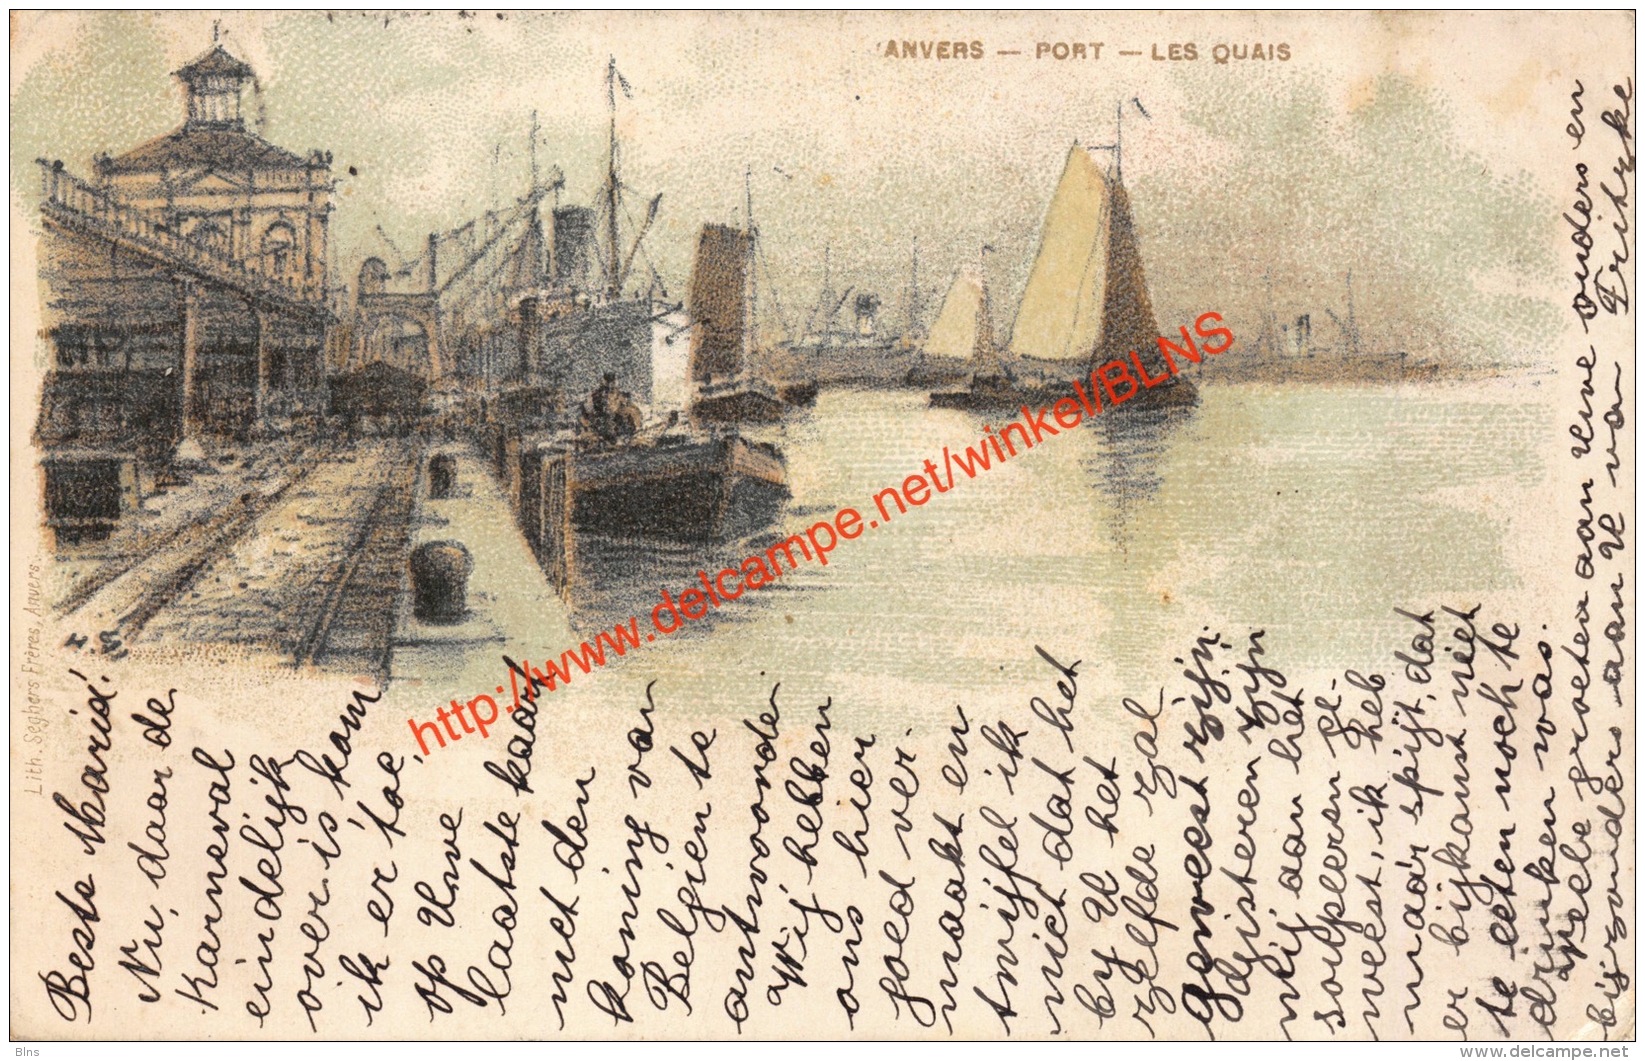 ANVERS — PORT — LES QUAIS
Lith. Seghers Frères, Anvers.
Beste Maria!
Nu, daar de
karneval
eindelijk
over is kom
ik er toe,
op Uwe
laatste kaart
met den
koning van
Belgien te
antwoorden
Wij hebben
ons hier
goed ver-
maakt en
twijfel ik
niet dat het
by U het
zelfde zal
geweest zijn.
Gisteren zijn
wij aan het
souperen ge-
weest, ik heb
maar spijt, dat
er bijkomst niet
te eeten noch te
drinken was.
Veele groeten aan Uwe ouders en
bijzonders aan U van Fritzke
http://www.delcampe.net/winkel/BLNS
Blns
www.delcampe.net